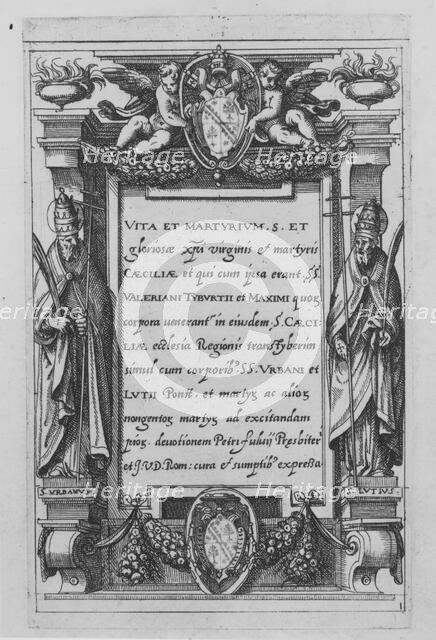 VITA ET MARTYRIVM. S. ET
gloriosæ xpi virginis et martyris
CÆCILIÆ, et qui cum ipsa erant. SS.
VALERIANI TYBVRTII et MAXIMI quor
corpora venerant in eiusdem. S. CÆCI
LIÆ. ecclesia Regionis transtyberim
simul cum corporib9. SS. VRBANI et
LVTII Ponif. et martyr ac alior
nongentor martyr ad excitandam
prior. deuotionem Petri fuluij Presbiter
et J.V.D. Rom: cura et sumptib9 expressa
S. VRBANVS.
LVTIVS.
1
heritage
Heritage
Images